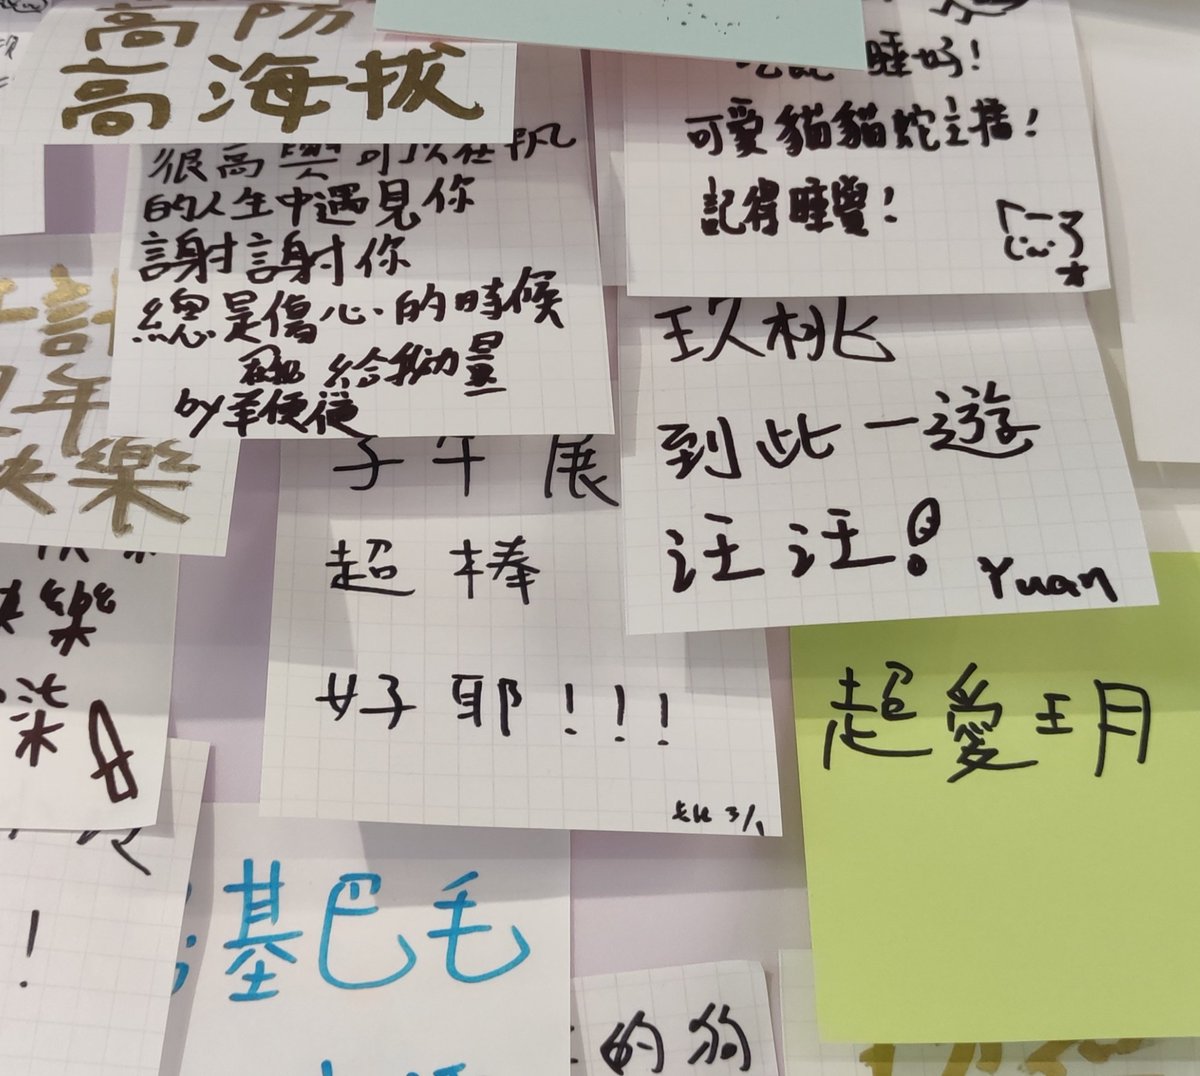 高防
高海拔
很高興可以在
的人生中遇見你
謝謝你
總是傷心的時候
給我力量
by羊便從
睡好!
可愛貓貓蛇主播!
記得睡覺!
玖桃
到此一遊
汪汪!
Yuan
子午展
超棒
好耶!!!
3/1
計
年
快樂
快樂
柒
!
超愛玥
基巴毛
的狗